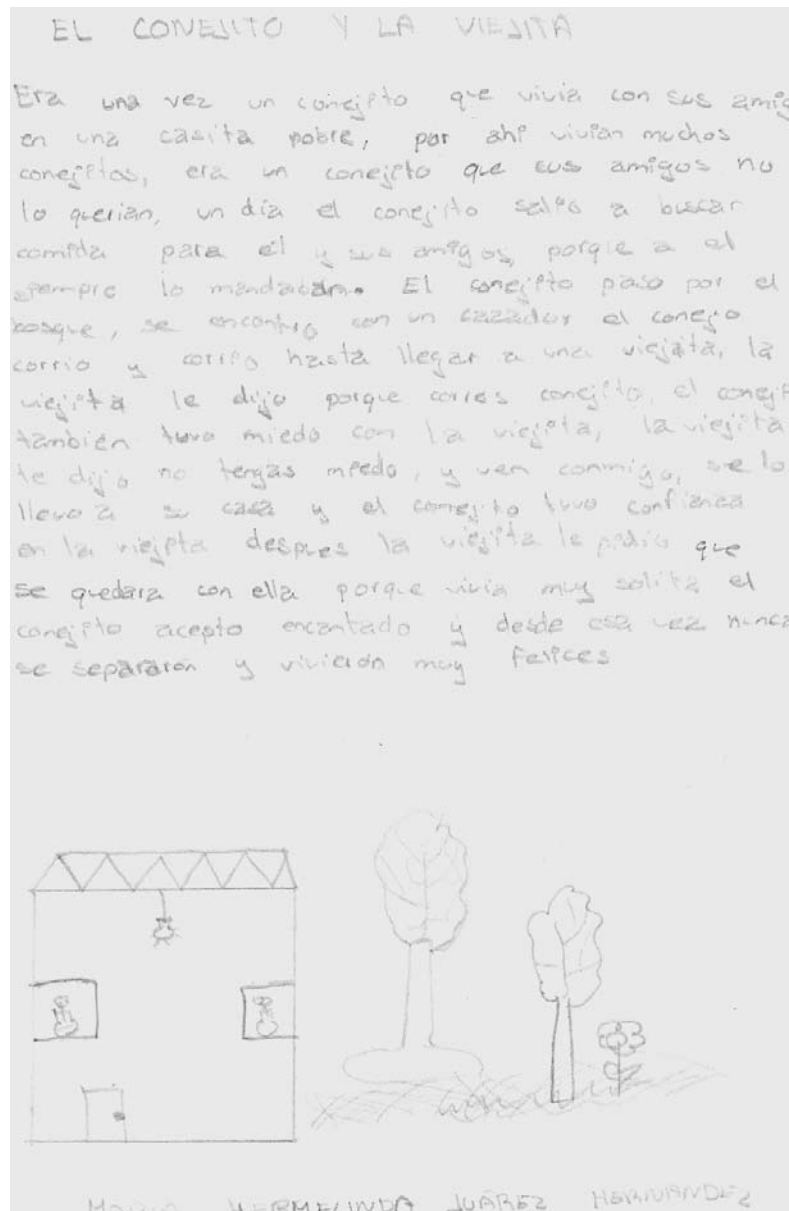 EL CONEJITO Y LA VIEJITA
Era una vez un conejito que vivia con sus amig
en una casita pobre, por ahí vivian muchos
conejitos, era un conejito que sus amigos no
lo querian, un día el conejito salio a buscar
comida para él y sus amigos, porque a el
siempre lo mandaban. El conejito paso por el
bosque, se encontro con un cazador el conejo
corrio y corrio hasta llegar a una viejita, la
viejita le dijo porque corres conejito, el conejit
también tuvo miedo con la viejita, la viejita
le dijo no tengas miedo, y ven conmigo, se lo
llevo a su casa y el conejito tuvo confianza
en la viejita despues la viejita le pidio que
se quedara con ella porque vivia muy solita el
conejito acepto encantado y desde esa vez nunca
se separarón y vivierón muy felices
MARIA HERMELINDA JUÁREZ HERNÁNDEZ